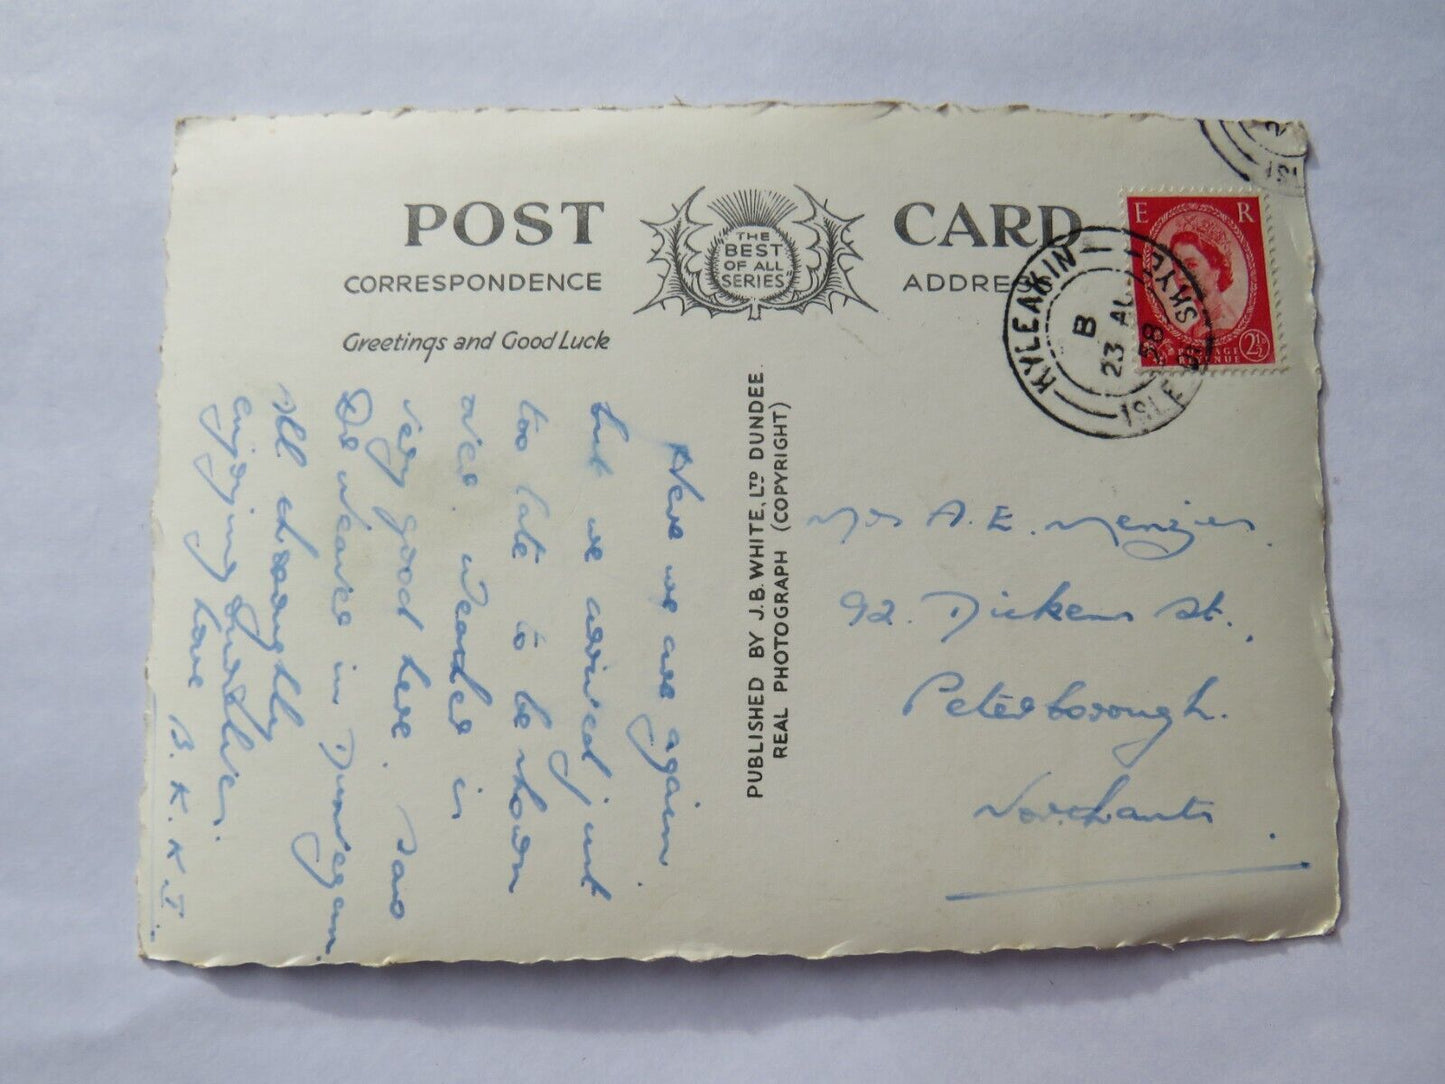 POST CARD
THE
BEST
OF ALL
SERIES
CORRESPONDENCE
ADDRE
Greetings and Good Luck
E R
POSTAGE
2½
KYLEAKIN
B
23 AU
58
ISLE OF SKYE
PUBLISHED BY J.B. WHITE, LTD DUNDEE.
REAL PHOTOGRAPH (COPYRIGHT)
Here we are again
but we arrived just
too late to be shown
over. Weather is
very good here.
in Dunvegan.
All thoroughly
enjoying ourselves.
Love B. K. K. J.
Mrs A. E. Menzies.
92. Dickens St.,
Peterborough.
Northants.